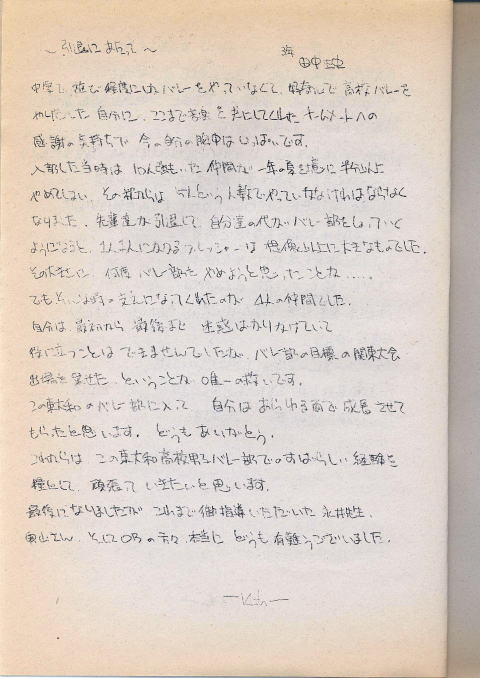 〜引退にあたって〜
田中
中学で遊び程度にしかバレーをやっていなくて、経験なしで高校バレーを
やりだした自分に、ここまで苦楽を共にしてくれたチームメートへの
感謝の気持ちで今の自分の胸中はいっぱいです。
入部した当時は10人強いた仲間が一年の夏を境に半分以上
やめてしまい、その秋からは 5人という人数でやっていかなければならなく
なりました。先輩達が引退して、自分達の代がバレー部をしょっていく
ようになると、1人1人にかかるプレッシャーは想像以上に大きなものでした。
その大きさに、何度バレー部をやめようと思ったことか.....
でもそんな時の支えになってくれたのが4人の仲間でした。
自分は最初から最後まで迷惑ばかりかけていて
役に立つことはできませんでしたが、バレー部の目標の関東大会
出場を果せた、ということが唯一の救いです。
この東大和のバレー部に入って自分はあらゆる面で成長させて
もらったと思います。どうもありがとう。
これからはこの東大和高校男子バレー部でのすばらしい経験を
糧にして、頑張っていきたいと思います。
最後になりましたが これまで御指導いただいた永井先生、
奥山さん、そしてOBの方々、本当にどうも有難うございました。